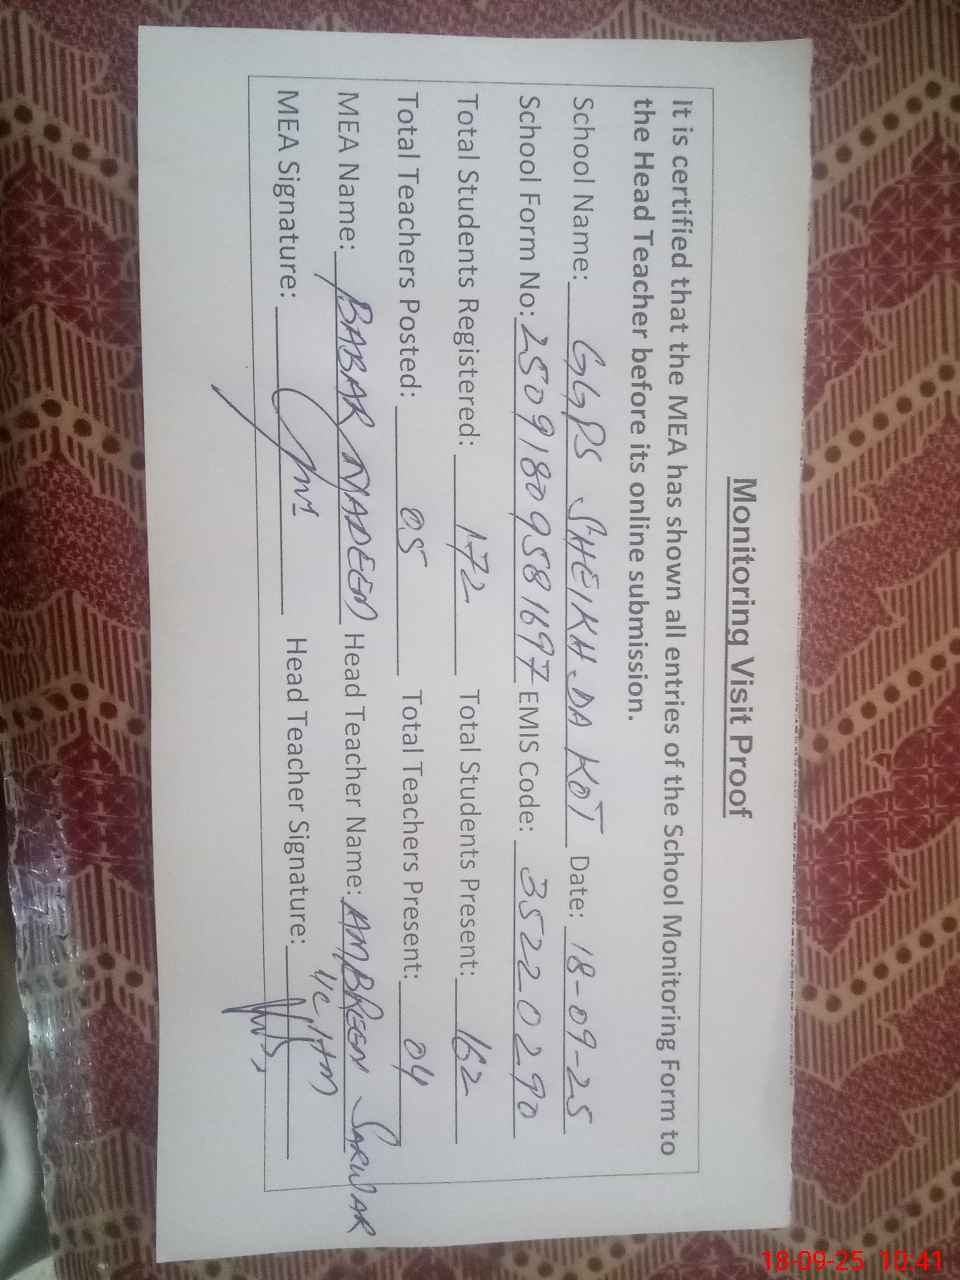 Monitoring Visit Proof
It is certified that the MEA has shown all entries of the School Monitoring Form to
the Head Teacher before its online submission.
School Name: GGPS SHEIKH DA KOT Date: 18-09-25
School Form No: 25091809581697 EMIS Code: 35220290
Total Students Registered: 172 Total Students Present: 162
Total Teachers Posted: 05 Total Teachers Present: 04
MEA Name: BABAR NADEEM Head Teacher Name: AMBREEN SARWAR
I/C HM
MEA Signature: Head Teacher Signature:
18-09-25 10:41